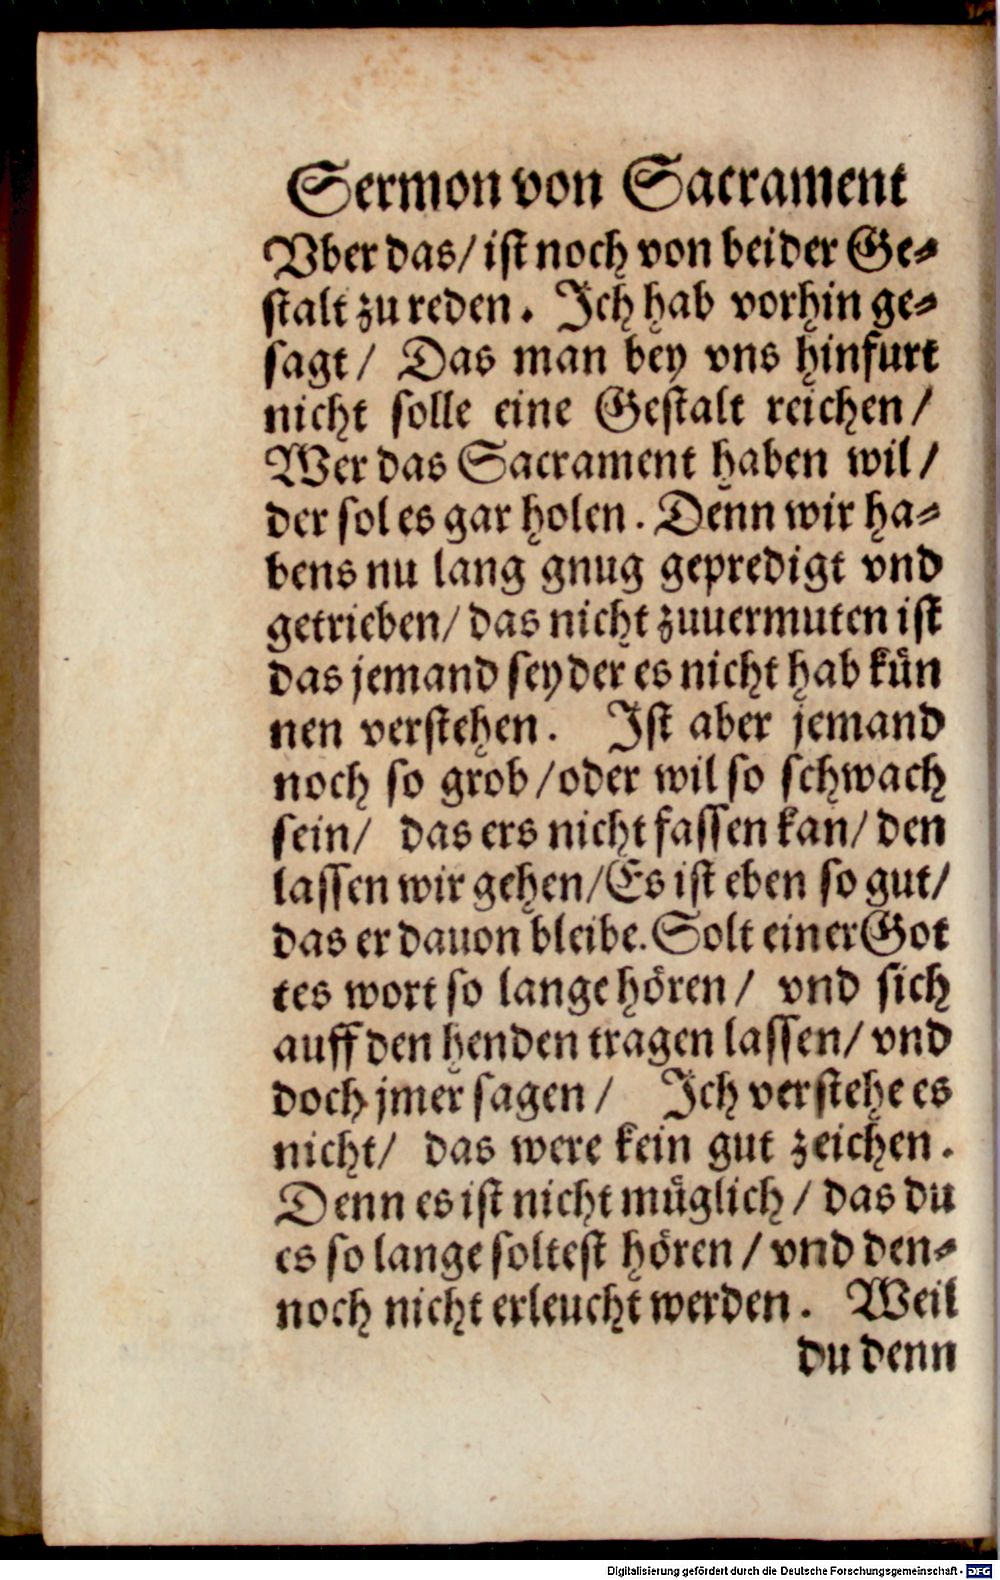 Sermon von Sacrament
Vber das/ ist noch von beider Ge-
stalt zu reden. Ich hab vorhin ge-
sagt/ Das man bey vns hinfurt
nicht solle eine Gestalt reichen/
Wer das Sacrament haben wil/
der sol es gar holen. Denn wir ha-
bens nu lang gnug gepredigt vnd
getrieben/ das nicht zuuermuten ist
das jemand sey der es nicht hab kün
nen verstehen. Ist aber jemand
noch so grob/ oder wil so schwach
sein/ das ers nicht fassen kan/ den
lassen wir gehen/ Es ist eben so gut/
das er dauon bleibe. Solt einer Got
tes wort so lange hören/ vnd sich
auff den henden tragen lassen/ vnd
doch jmer sagen/ Ich verstehe es
nicht/ das were kein gut zeichen.
Denn es ist nicht müglich/ das du
es so lange soltest hören/ vnd den-
noch nicht erleucht werden. Weil
du denn
Digitalisierung gefördert durch die Deutsche Forschungsgemeinschaft - DFG